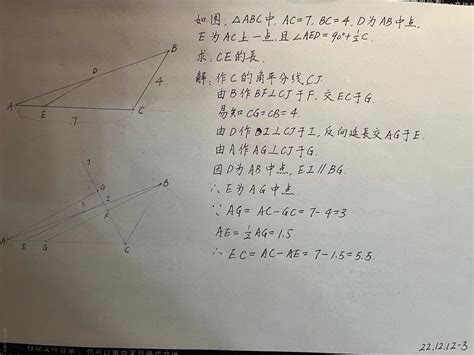 如图, △ABC中, AC=7, BC=4, D为AB中点,
E为AC上一点, 且∠AED=90°+½C.
求: CE的長.
解: 作C的角平分线CJ
由B作BF⊥CJ于F, 交EC于G.
易知CG=CB=4
由D作DI⊥CJ于I, 反向延長交AG于E.
由A作AG⊥CJ于G.
因D为AB中点, EI∥BG.
∴E为AG中点.
∵ AG=AC-GC=7-4=3
AE=½AG=1.5
∴EC=AC-AE=7-1.5=5.5.
B
D
4
A
E
C
7
J
G
B
D
I
F
A
E
G
C
22.12.12-3